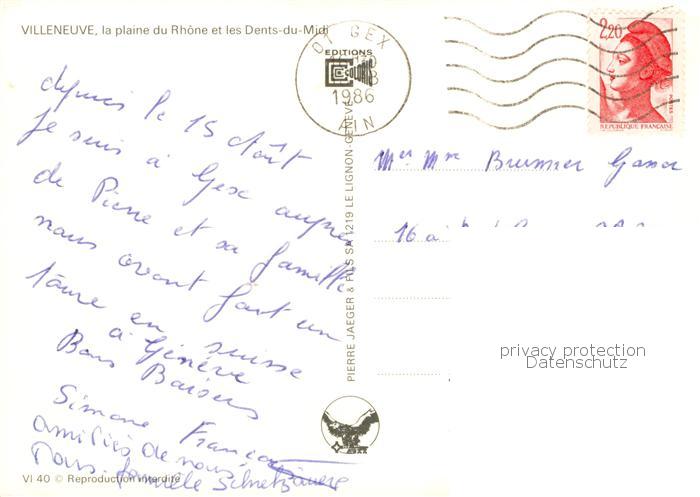 VILLENEUVE, la plaine du Rhône et les Dents-du-Midi
depuis le 15 Août
Je suis à Gex auprès
de Pierre et sa famille
nous avont fait un
tour en suisse
à Genève
Bons Baisers
Simone
amitiés de nous
Tous. famille
VI 40 © Reproduction interdite
EDITIONS
PIERRE JAEGER & FILS SA 1219 LE LIGNON-GENEVE
01 GEX
1986
AIN
2,20
POSTES
REPUBLIQUE FRANÇAISE
Mr Mme Brunner
16
privacy protection
Datenschutz